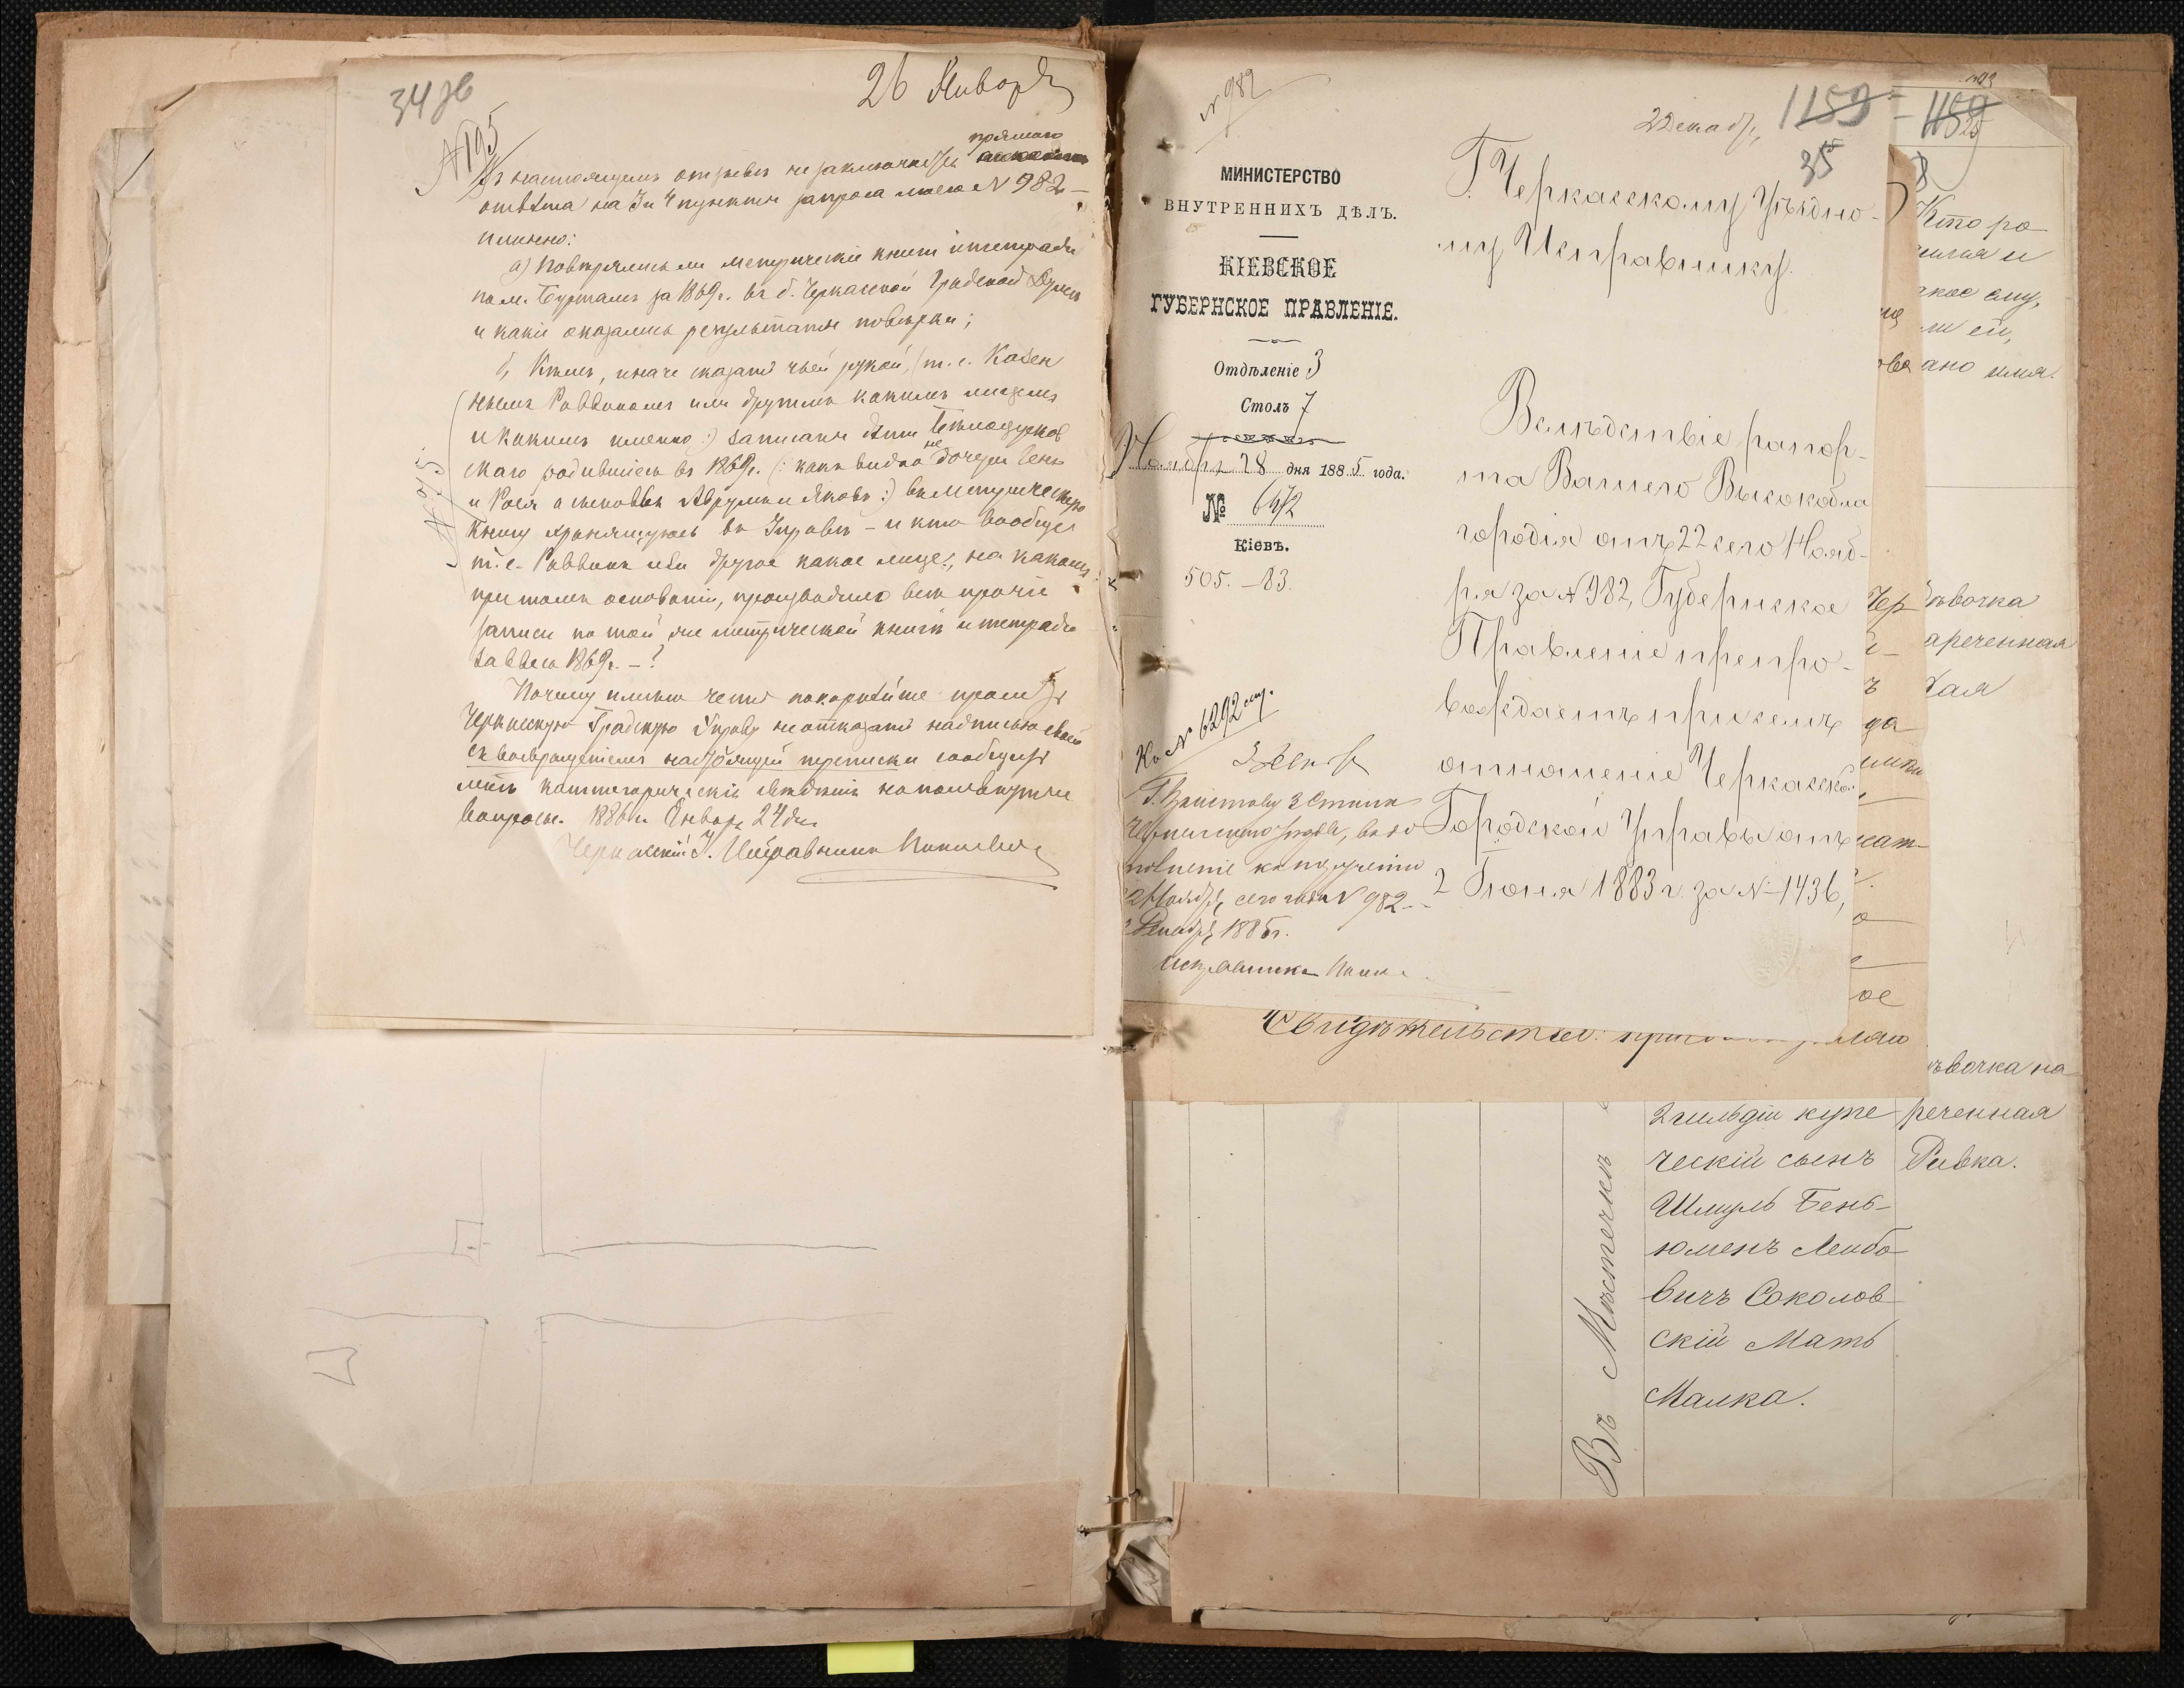 34 об
26 Января
№ 195
прямого
Въ настоящемъ отзывѣ не заключается
отвѣта на 3 и 4 пункты запроса моего № 982 —
именно:
а) Повѣрялись ли метрическіе книги и тетради
по м. Буртамъ за 1869 г. въ б. Черкасской Градской Думѣ
и какіе оказались результаты повѣрки;
б, Кѣмъ, иначе сказать чьей рукой, (т. е. Казен
нымъ Раввиномъ или другимъ какимъ лицемъ
и какимъ именно:) записаны дѣти
скаго родившіесь въ 1869 г. (: какъ видно дочери
и Рося а сыновья Аврумъ и Яковъ :) въ метрическую
книгу хранящуюсь въ Управѣ – и кто вообще
т. е. Раввинъ или другое какое лице, на какомъ
при томъ основаніи, производило всѣ прочіе
записи по той же метрической книгѣ и тетради
за весь 1869 г. – ?
Почему имѣю честь покорнѣйше просить
Черкасскую Градскую Управу не отказать надписью своею
съ возвращеніемъ настоящей переписки сообщить
мнѣ категорическія свѣдѣнія на помянутые
вопросы. 1886 г. Января 24 дня
Черкасскій У. Исправникъ
№ 982
МИНИСТЕРСТВО
ВНУТРЕННИХЪ ДѢЛЪ.
КІЕВСКОЕ
ГУБЕРНСКОЕ ПРАВЛЕНІЕ.
Отдѣленіе 3
Столъ 7
Ноября 28 дня 1885 года.
№ 6472
Кіевъ.
505. – 83.
Къ № 6292
3 Декабр
Г. Приставу 3 Стана
Черкасскаго уѣзда, въ до
полненіе къ порученію
Ноября сего года № 982 —
Декабря 1885 г.
Исправникъ
2 Декабр,
1159
35
Г. Черкасскому Уѣздно-
му Исправнику.
Вслѣдствіе рапор-
та Вашего Высокобла
городія отъ 22 сего Нояб-
ря за № 982, Губернское
Правленіе препро-
вождаетъ при семъ
отношеніе Черкасской
Городской Управы отъ
2 Іюня 1883 г. за № 1436,
1159
25
8
Кто ро
ли ей,
ано имя.
Чер
да
ое
дѣвочка
нареченная
Свидѣтельство
ѣвочка на
реченная
Ривка.
Въ Мѣстечкѣ
2 гильдіи купе
ческій сынъ
Шмуль Бень-
юменъ Лейбо
вичъ Соколов
скій Мать
Малка.